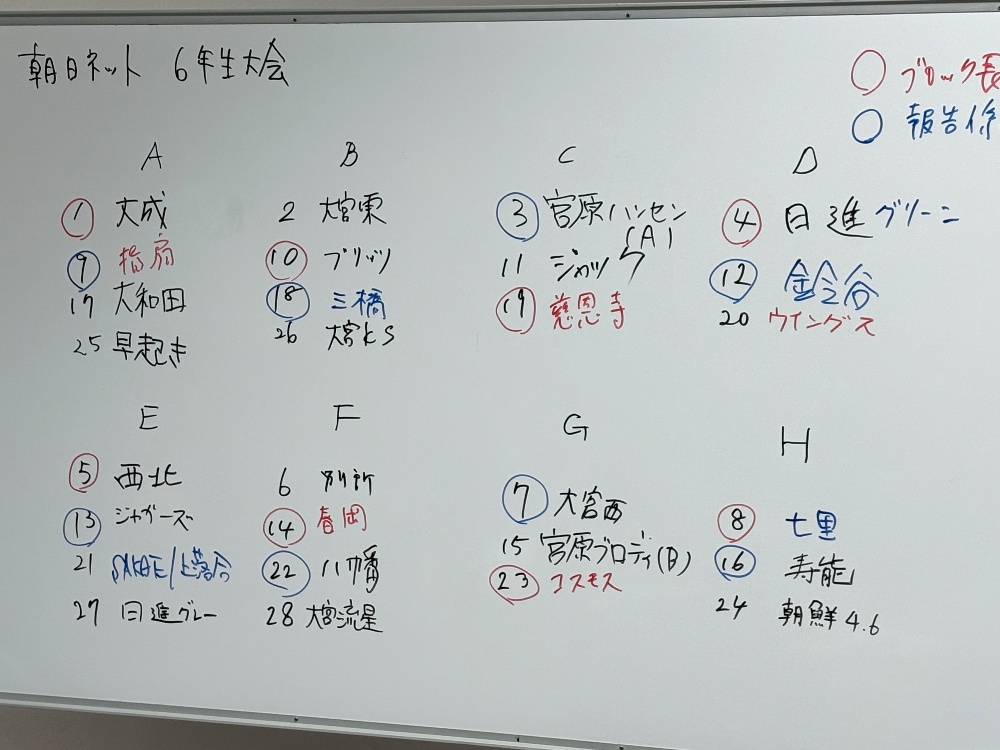 朝日ネット 6年生大会
○ ブロック長
○ 報告係
A B C D
1 大成
9 指扇
17 大和田
25 早起き
2 大宮東
10 ブリッツ
18 三橋
26 大宮KS
3 宮原ハンセン
(A)
11 ジャック
19 慈恩寺
4 日進グリーン
12 金鈴谷
20 ウイングス
E F G H
5 西北
13 ジャガーズ
21 SAKAE/上落合
27 日進グレー
6 別所
14 春岡
22 八幡
28 大宮流星
7 大宮西
15 宮原ブロディ(B)
23 コスモス
8 七里
16 寿能
24 朝鮮4.6